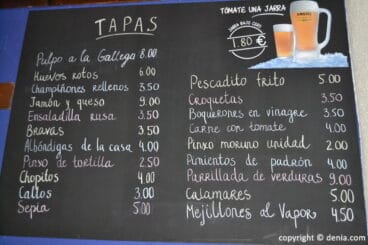 TAPAS
Pulpo a la Gallega 8.00
Huevos rotos 6.00
Champiñones rellenos 3.50
Jamón y queso 9.00
Ensaladilla rusa 3.50
Bravas 3.50
Albóndigas de la casa 4.00
Pinxo de tortilla 2.50
Chopitos 4.00
Callos 3.00
Sepia 5.00
TÓMATE UNA JARRA
1.80 €
Pescadito frito 5.00
Croquetas 3.50
Boquerones en vinagre 3.50
Carne con tomate 4.00
Pinxo moruno unidad 2.00
Pimientos de padrón 4.00
Parrillada de verduras 9.00
Calamares 5.00
Mejillones al Vapor 4.50
copyright © denia.com